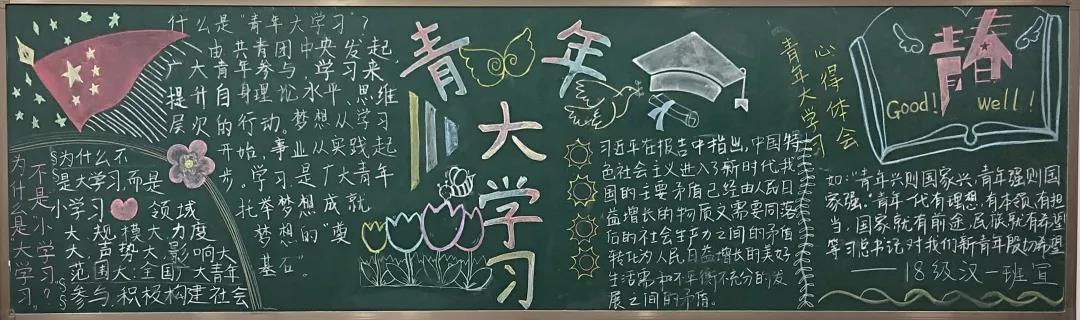 什么是“青年大学习”?
由共青团中央发起,
广大青年参与,学习来,
提升自身理论水平、思维
层次的行动。梦想从学习
开始,事业从实践起
步。学习是广大青年
托举梦想成就
梦想的“奠
基石”。
为什么是“大学习”
不是“小学习”?
为什么不
是大学习,而是
小学习 领域
大,规模大,力度
大,声势大,影响大
范围大:全国广大青年
参与,积极构建社会
青年
大学习
习近平在报告中指出,中国特
色社会主义进入了新时代我
国的主要矛盾已经由人民日
益增长的物质文需要同落
后的社会生产力之间的矛盾
转化为人民日益增长的美好
生活需和不平衡不充分的发
展之间的矛盾。
青年大学习
心得体会
青春
Good! well!
如:“青年兴则国家兴,青年强则国
家强。”青年一代有理想,有本领,有担
当,国家就有前途,民族就有希望
等习总书记对我们新青年殷切希望
——18级汉一班宣